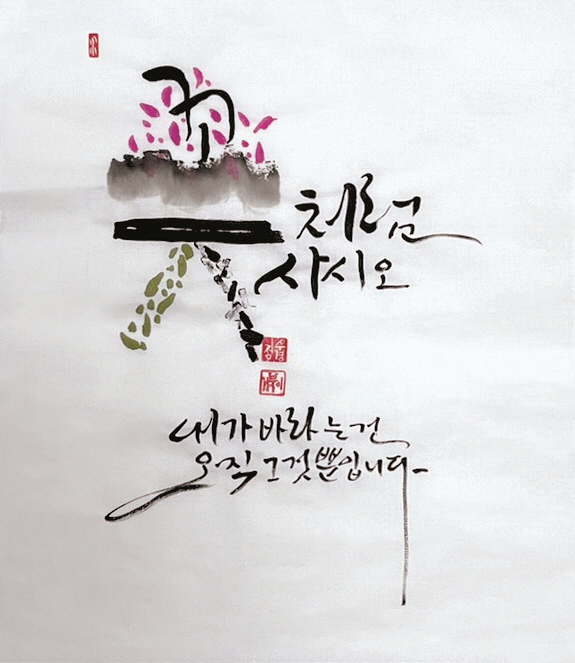 꽃처럼
사시오
내가 바라는 건
오직 그것뿐입니다